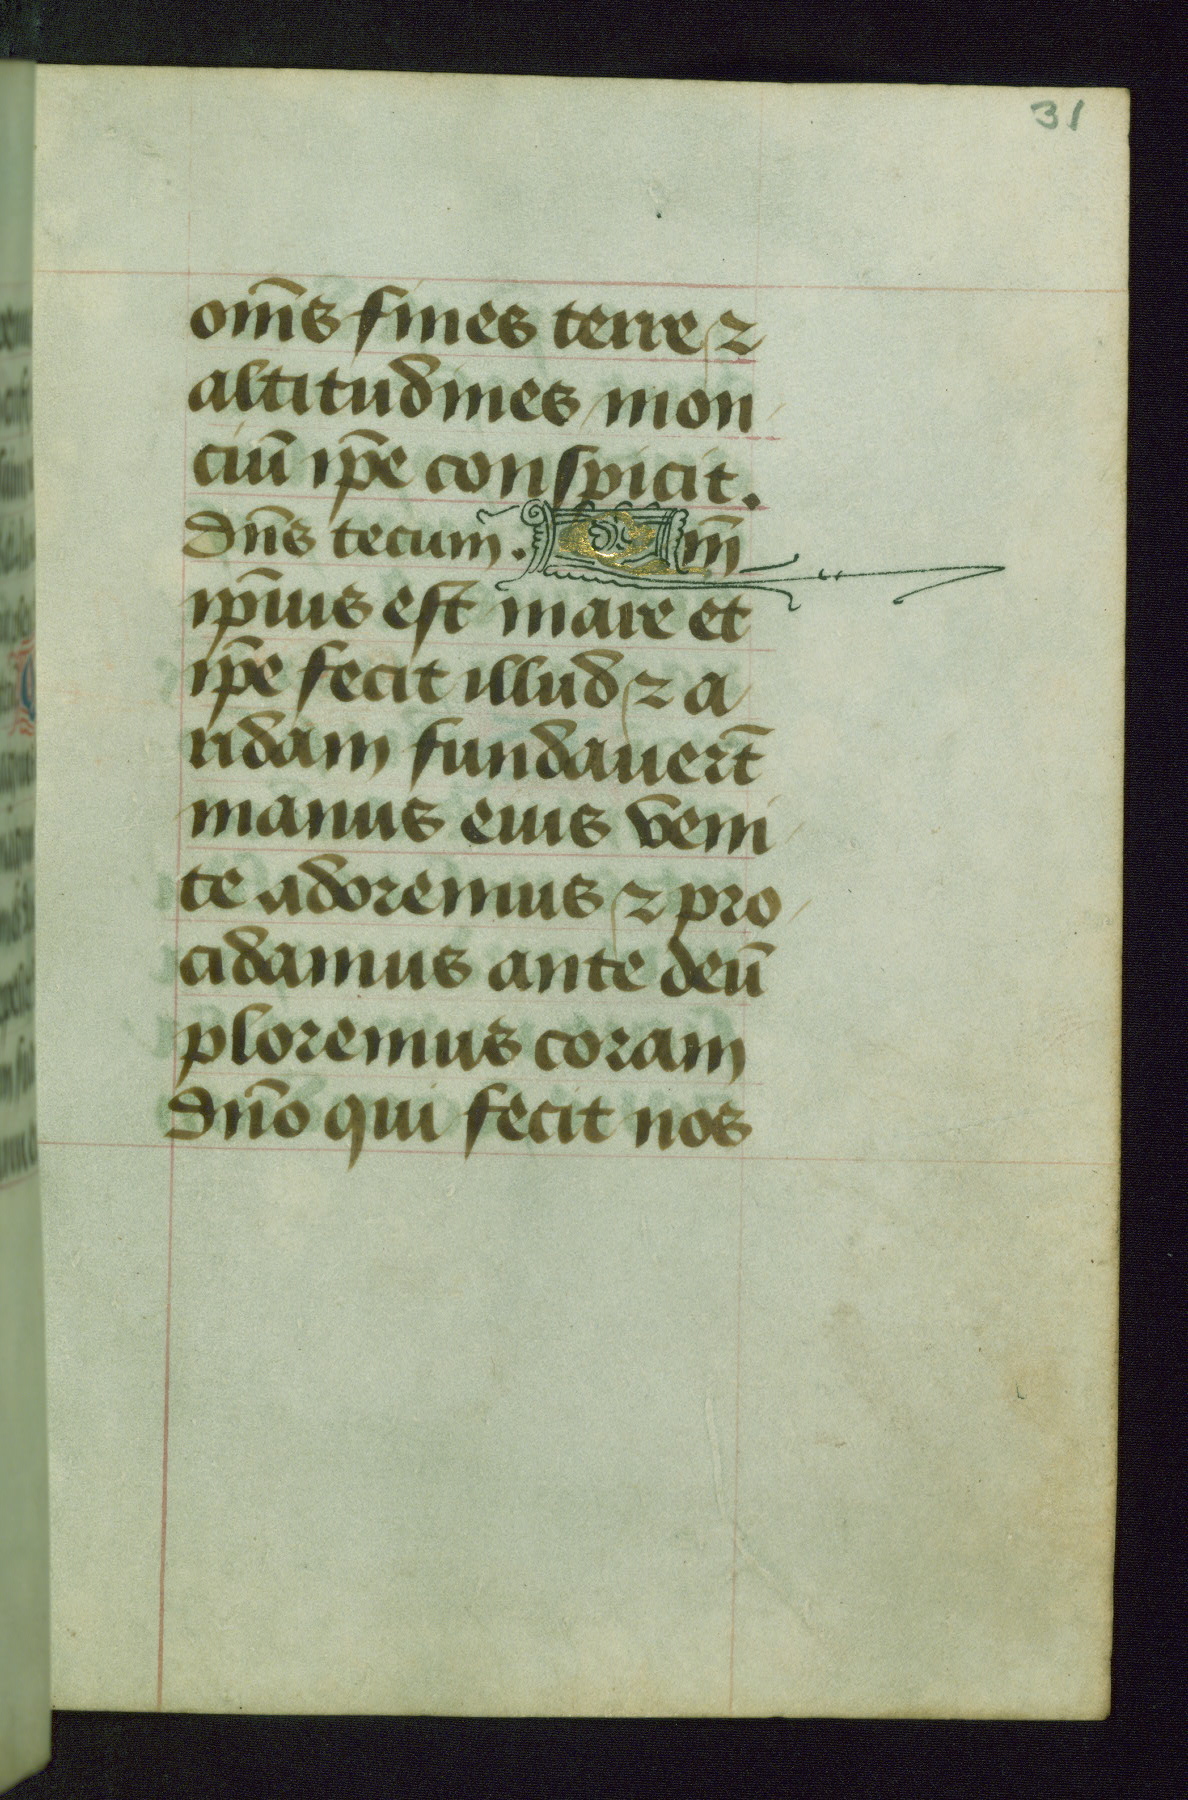 31
om̄s fines terre ⁊
altitudines mon
ciū ip̄e conspicit.
dn̄s tecum. Qm̄
ip̄ius est mare et
ip̄e fecit illud ⁊ a
ridam fundauert̄
manus eius veni
te adoremus ⁊ pro
cidamus ante deū
ploremus coram
dn̄o qui fecit nos